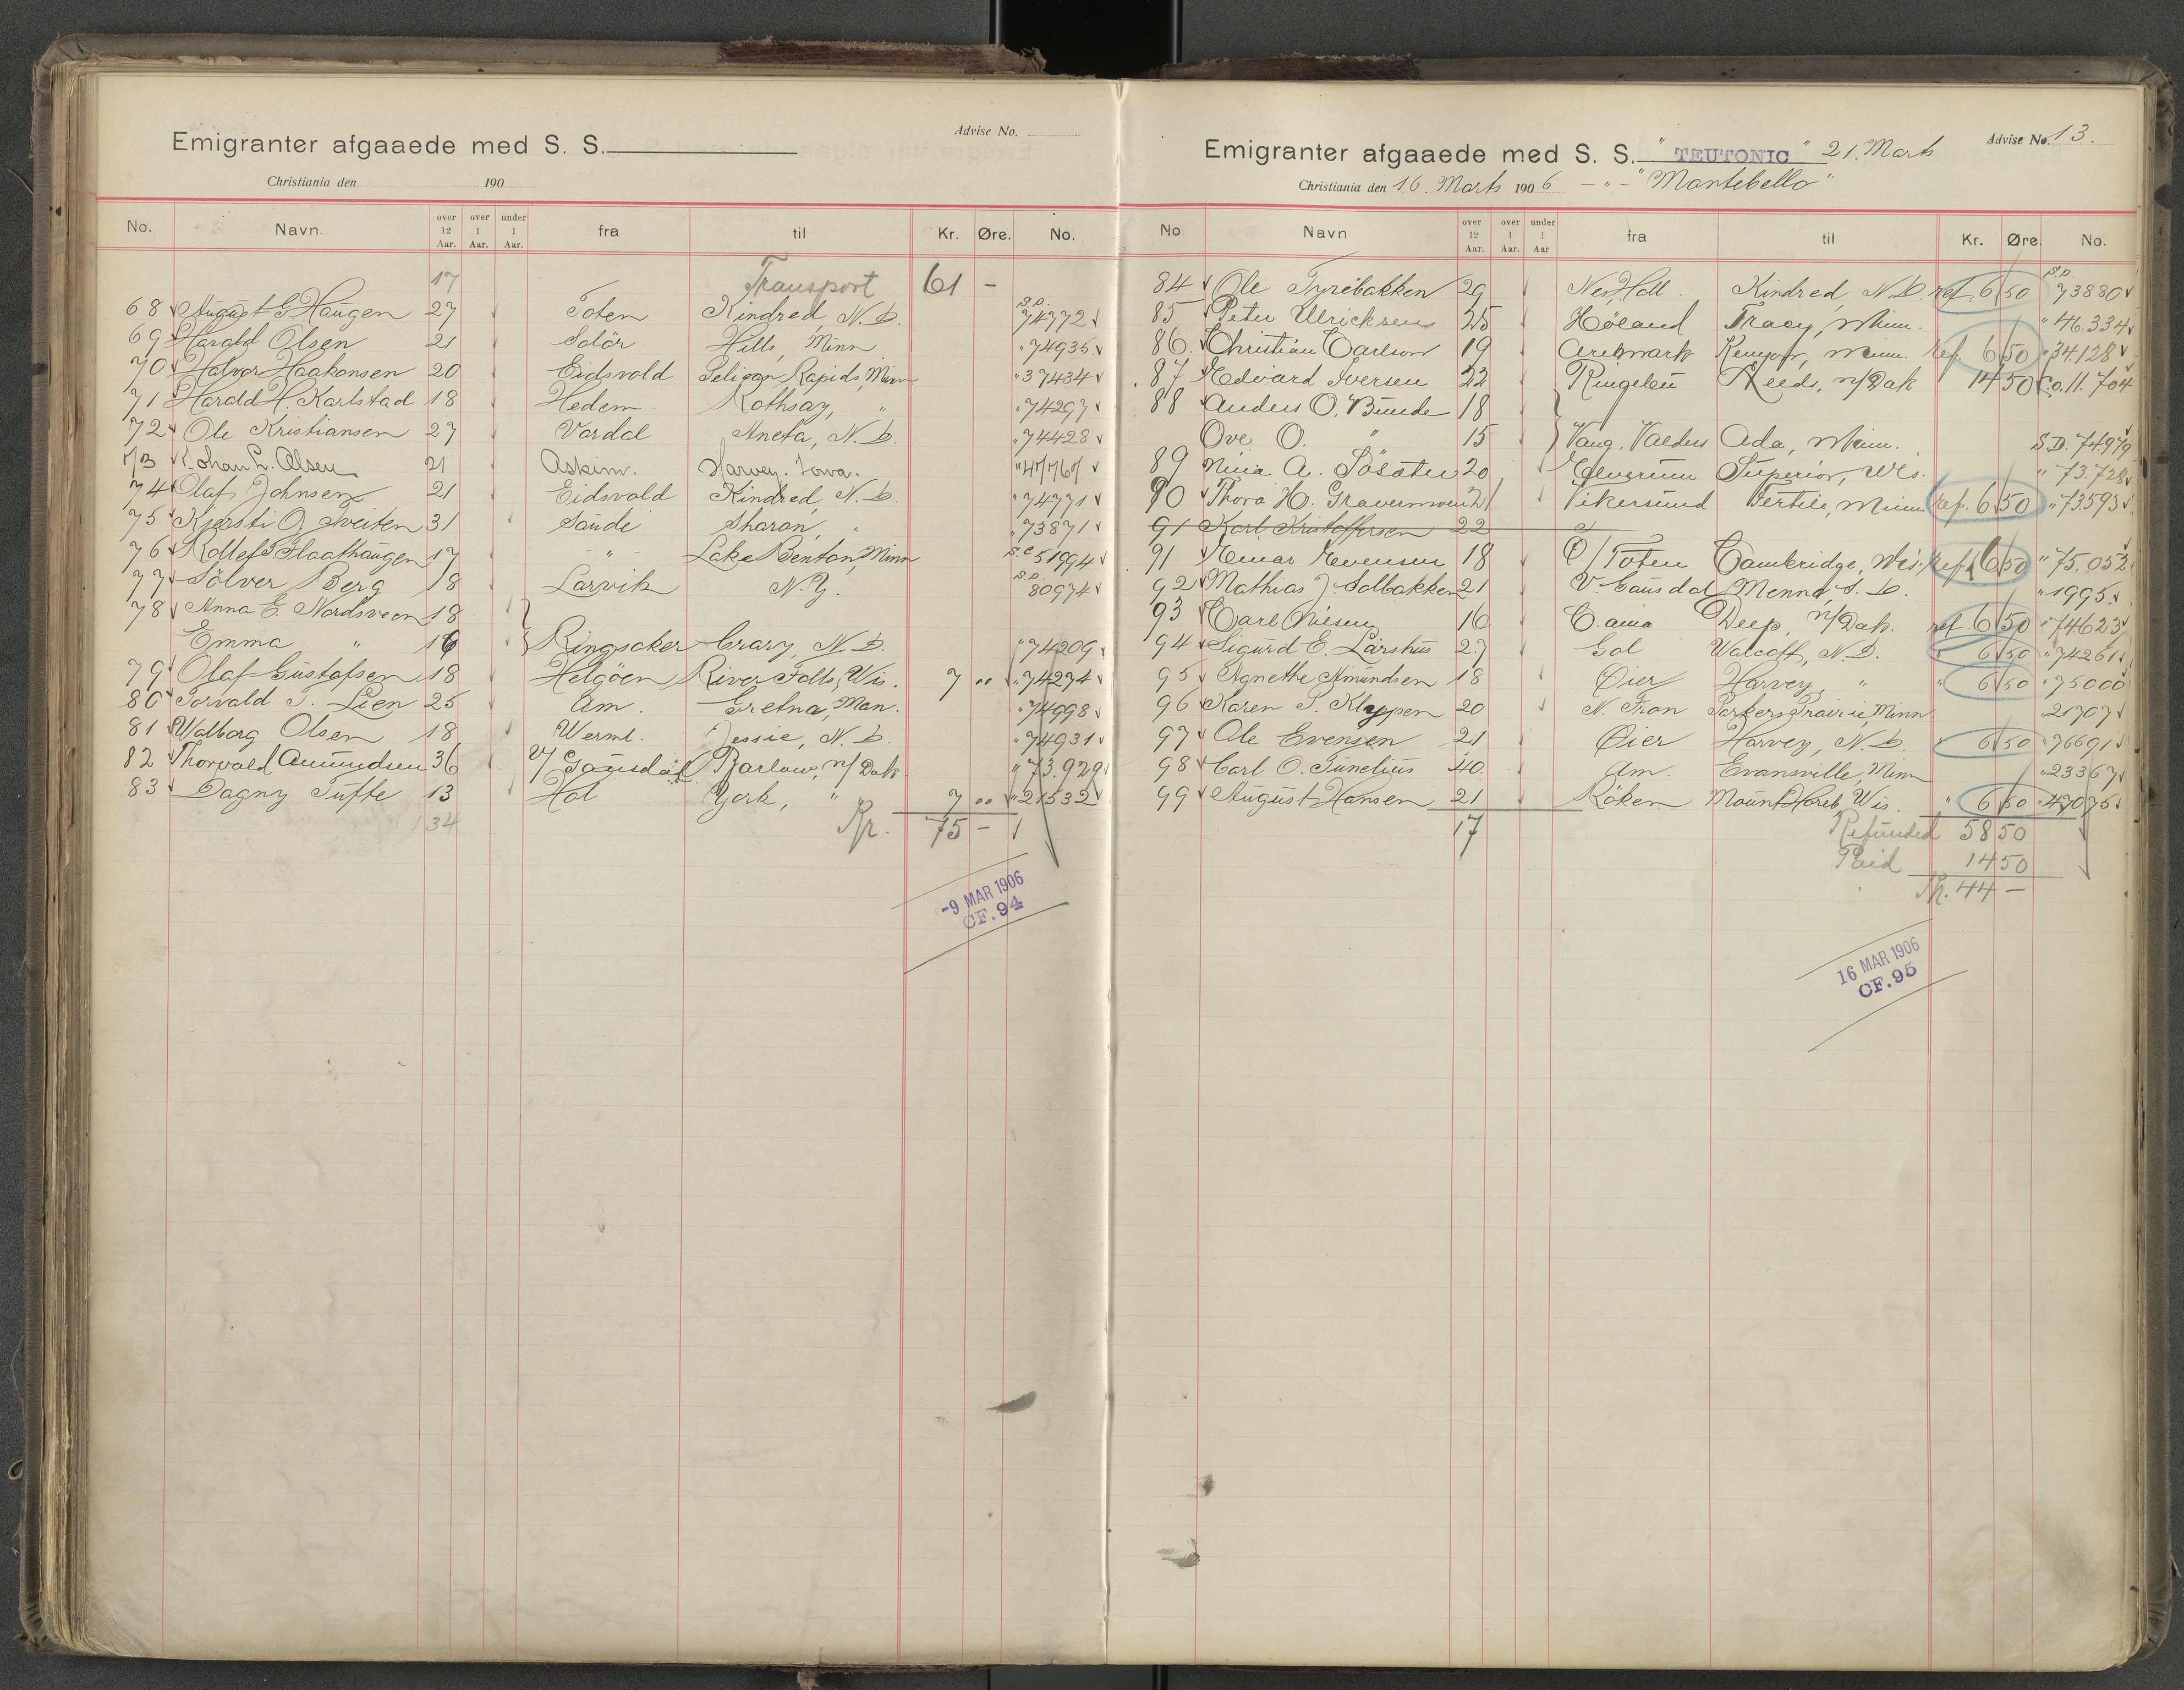 Advise No.
Emigranter afgaaede med S. S.
Christiania den 190
No. Navn. over 12 Aar. over 1 Aar. under 1 Aar. fra til Kr. Øre. No.
17 Transport 61 -
68 August G Haugen 27 Toten Kindred N. D. S.D. 74772
69 Harald Olsen 21 Solör Hills, Minn " 74935
70 Halvor Haakonsen 20 Eidsvold Peligan Rapids, Minn " 37434
71 Harald H. Karlstad 18 Hedem. Rothsay, " " 74297
72 Ole Kristiansen 27 Vardal Aneta, N. D. " 74428
73 Johan L. Olsen 21 Askim. Harvey. Iowa. " 47767
74 Olaf Johnsen 21 Eidsvold Kindred, N. D. " 74771
75 Kjersti O. Tveiten 31 Sande Sharon, " " 73871
76 Rollef T Flaathaugen 17 - " - Lake Benton, Minn S.C 51994
77 Sölver Berg 18 Larvik N.Y. S.D. 80974
78 Anna E. Nordsveen 18
Emma " 16 Ringsaker Crary, N. D. " 74209
79 Olaf Gustafsen 18 Helgöen River Falls, Wis. 7 00 " 74274
80 Torvald T. Lien 25 Am. Gretna, Man. " 74998
81 Walborg Olsen 18 Werml. Jessie, N. D. " 74931
82 Thorvald Amundsen 36 V/ Gausdal Barlow, N/Dak " 73.929
83 Dagny Tufte 13 Hol York, " 7 00 " 21532
34 Kr. 75 -
-9 MAR 1906
CF. 94
Advise No. 13.
Emigranter afgaaede med S. S. " TEUTONIC " 21. Marts
Christiania den 16. Marts 1906 - " - "Montebello"
No Navn over 12 Aar. over 1 Aar. under 1 Aar fra til Kr. Øre. No.
84 Ole Tyribakken 29 Nes, Hall. Kindred, N. D. ref. 6 50 S.D. 73880
85 Peter Ulricksen 25 Höland Tracy, Minn. " 46.334
86. Christian Carlson 19 Aremark Kenyon, Minn. ref. 6 50 " 34128
87 Edvard Iversen 22 Ringebu Leeds, N/Dak 14 50 Co. 11. 704
88 Anders O. Bunde 18
Ove O. " 15 Vang. Valders Ada, Minn. S.D. 74979
89 Nina A. Sösæter 20 Elverum Superior, Wis. " 73.728
90 Thora H. Gravermoen 21 Vikersund Fertile, Minn ref. 6 50 " 73593
91 Karl Kristoffersen 22
91 Einar Evensen 18 Ø/Toten Cambridge, Wis. ref. 6 50 " 75.052
92 Mathias J. Solbakken 21 V. Gausdal Menno, S. D. " 1995
93 Carl Nilsen 16 C. ania Deep, N/Dak. ref. 6 50 " 74623
94 Sigurd E. Larshus 27 Gol Walcott, N. D. " 6 50 " 74261
95 Agnethe Amundsen 18 Øier Harvey, " " 6 50 " 75000
96 Karen P. Kleppen 20 N. Fron Parkers Prairie, Minn " 21707
97 Ole Evensen 21 Øier Harvey, N. D. " 6 50 " 76691
98 Carl O. Tunelius 40. Am. Evansville, Minn " 23367
99 August Hansen 21 Röken Mount Horeb, Wis " 6 50 " 47075
17 Refunded 58 50
Paid 14 50
Kr. 44 -
16 MAR 1906
CF. 95